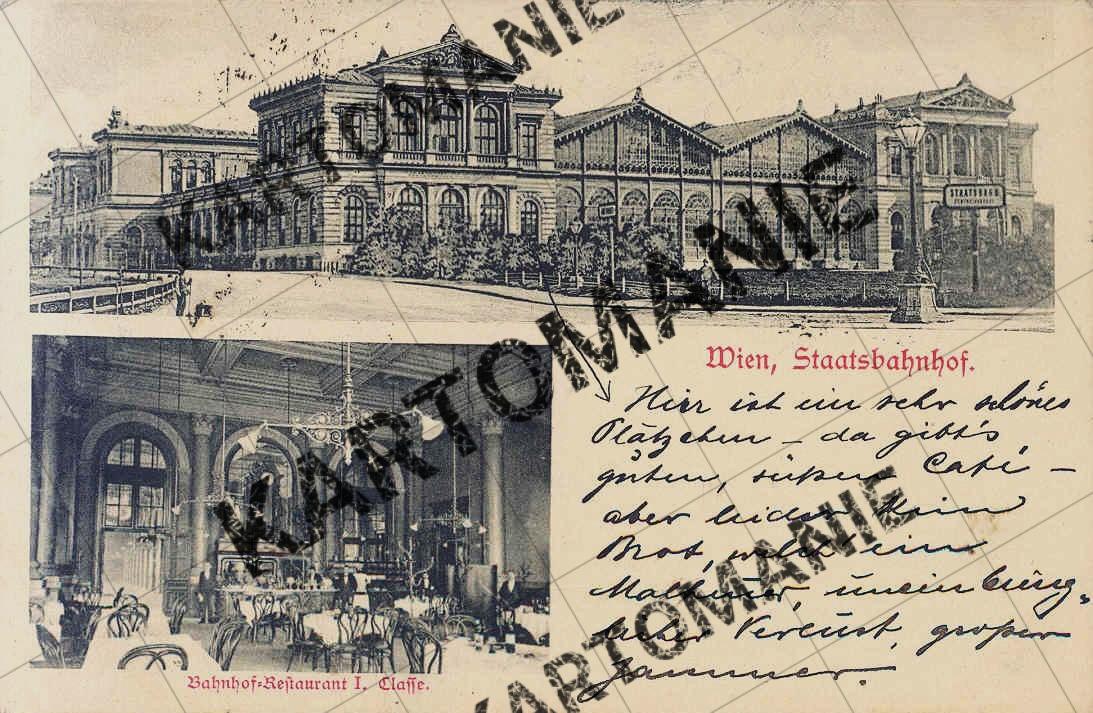 STAATSBAHN
Wien, Staatsbahnhof.
Hier ist ein sehr schönes
Plätzchen – da gibt's
guten, süßen Café –
aber leider kein
Brot, welch ein
Malheur, unein bring-
licher Verlust, großer
Jammer.
Bahnhof-Restaurant I. Classe.
KARTOMANIE
KARTOMANIE
KARTOMANIE
KARTOMANIE
KARTOMANIE
KARTOMANIE